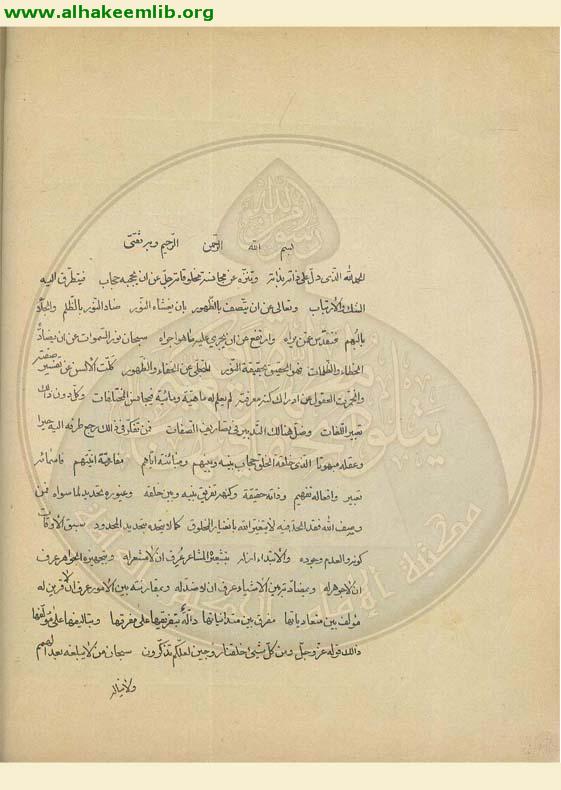 www.alhakeemlib.org
بسم الله الرحمن الرحيم وبه ثقتى
الحمد لله الذى دل على ذاته بذاته وتنزه عن مجانسة مخلوقاته جل عن ان يحجبه حجاب فيتطرق اليه
الشك والارتياب وتعالى عن ان يتصف بالظهور بان يغشاه النور ضاد النور بالظلم والجلاء
بالبهم فتقدس عن سواه وارتفع عن ان يجرى عليه ما هو اجراه سبحان نور السموات عن ان يضاده
الظلمات فهو الحقيق بحقيقة النور المتعالى عن الخفاء والظهور كلت الالسن عن تفسير صفته
وانحجزت العقول عن ادراك كنه معرفته لم يعلم له ماهية ومائية فيجانس المختلفات وكل دون ذلك
تعبير اللغات وضل هنالك التدبير فى تصاريف الصفات فمن تفكر فى ذلك رجع طرفه اليه حسيرا
وعقله مبهوتا الذى خلقة الخلق حجاب بينه وبينهم ومباينته اياهم مفارقته انيتهم فاسمائه
تعبير وافعاله تفهيم وذاته حقيقة وكنهه تفريق بينه وبين خلقه وغيوره تحديد لما سواه فمن
وصف الله فقد الحد فيه لا يتغير الله بانغيار المخلوق كما لا يتحدد بتحديد المحدود سبق الاوقات
كونه والعدم وجوده والابتداء ازله بتشعيره المشاعر عرف ان لا مشعر له وبتجهيره الجواهر عرف
ان لا جوهر له وبمضادته بين الاشياء عرف ان لا ضد له وبمقارنته بين الامور عرف ان لا قرين له
مؤلف بين متعادياتها مفرق بين متدانياتها دالة بتفريقها على مفرقها وبتاليفها على مؤلفها
ذلك قوله عز وجل ومن كل شىء خلقنا زوجين لعلكم تذكرون سبحان من لا يبلغه بعد الهمم
ولا يناله